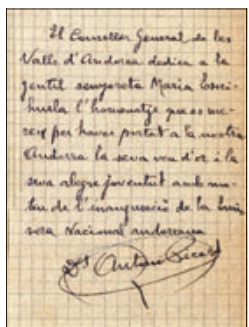 El Conseller General de les
Valls d'Andorra dedica a la
gentil senyoreta Maria
l'homenatge que es me-
reix per haver portat a la nostra
Andorra la seva veu d'or i la
seva alegre joventut amb mo-
tiu de l'inauguració de la Emis
sora Nacional andorrana
Antoni Picart